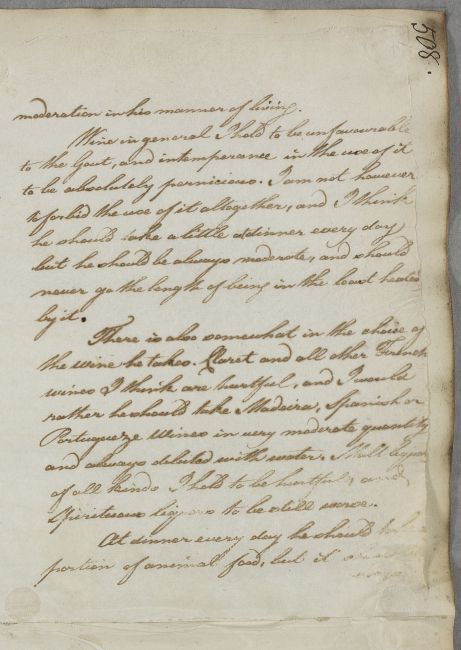 508.
moderation in his manner of living.
Wine in general I hold to be unfavourable
to the Gout, and intemperance in the use of it
to be absolutely pernicious. I am not however
to forbid the use of it altogether, and I think
he should take a little at dinner every day
but he should be always moderate, and should
never go the length of being in the least heated
by it.
There is also somewhat in the choice of
the wine he takes. Claret and all other French
wines I think are hurtful, and I would
rather he should take Madeira, Spanish or
Portugueze Wines in very moderate quantity
and always deluted with water. Malt liquors
of all kinds I hold to be hurtful, and
Spirituous liquors to be still worse.
At dinner every day he should
portion of animal food, but it